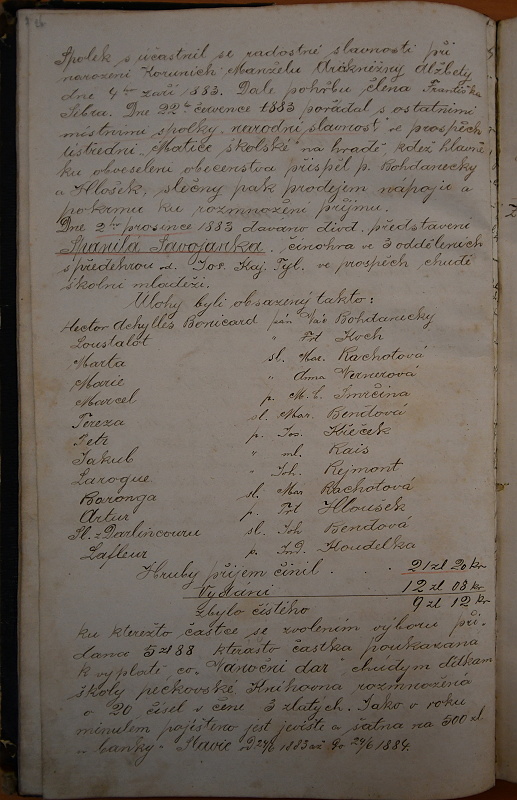 Spolek súčastnil se radostné slavnosti při
narození Korunních Manželů Arckněžny Alžběty
dne 4ho září 1883. Dále pohřbu člena Františka
Dne 22ho července 1883 pořádal s ostatními
místními spolky národní slavnost ve prospěch
ústřední "Matice školské" na hradě, kdež hlavně
ku obveselení obecenstva přispěl p. Bohdanecký
a Hlošek, slečny pak prodejem nápojů a
pokrmů ku rozmnožení příjmu.
Dne 2ho prosince 1883 dáváno divd. představení
Spanilá Savojanka. činohra ve 3 odděleních
s předehrou od. Jos. Kaj. Tyl. ve prospěch chudé
školní mládeže.
Úlohy byli obsazeny takto:
Hector Achylles Bonicard pán Vác Bohdanecký
Loustalot " Frt Koch
Marta sl. Mar. Rachotová
Marie " Anna Vernerová
Marcel p. M. C. Smrčina
Tereza sl. Mar. Bendová
Petr p. Jos. Křeček
Jakub " ml. Kais
Laroque " Joh. Rejmont
Baronga sl. Mar Rachotová
Artur p. Frt Hloušek
Sl. z Darlincouru sl. Joh Bendová
Lafleur p. Ind. Koudelka
Hrubý příjem činil . . . 21 zl 20 kr
Vydání 12 zl 08 kr
zbylo čistého 9 zl 12 kr
ku kterežto částce se svolením výboru při-
dáno 5 zl 88 kterásto částka poukázána
k výplatě co. "Vánoční dar" chudým dítkám
školy pečkovské. Knihovna rozmnožena
o 20 čísel v ceně 3 zlatých. Jako v roku
minulém pojištěno jest jeviště a šatna na 500 zl
u banky "Slavie" od 24/6 1883 až do 24/6 1884.